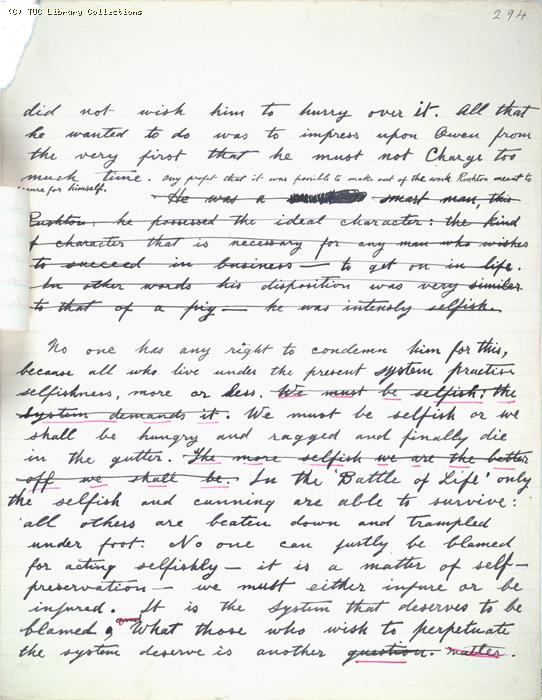 (C) TUC Library Collections
294
did not wish him to hurry over it. All that
he wanted to do was to impress upon Owen from
the very first that he must not Charge too
much time. Any profit that it was possible to make out of the work Rushton meant to
secure for himself.
He was a smart man, this
Rushton: he possessed the ideal character: the kind
of character that is necessary for any man who wishes
to succeed in business — to get on in life.
In other words his disposition was very similar
to that of a pig — he was intensely selfish.
No one has any right to condemn him for this,
because all who live under the present system practise
selfishness, more or less. We must be selfish: the
system demands it. We must be selfish or we
shall be hungry and ragged and finally die
in the gutter. The more selfish we are the better
off we shall be. In the 'Battle of Life' only
the selfish and cunning are able to survive:
all others are beaten down and trampled
under foot. No one can justly be blamed
for acting selfishly — it is a matter of self-
preservation — we must either injure or be
injured. It is the system that deserves to be
blamed, and What those who wish to perpetuate
the system deserve is another question. matter.